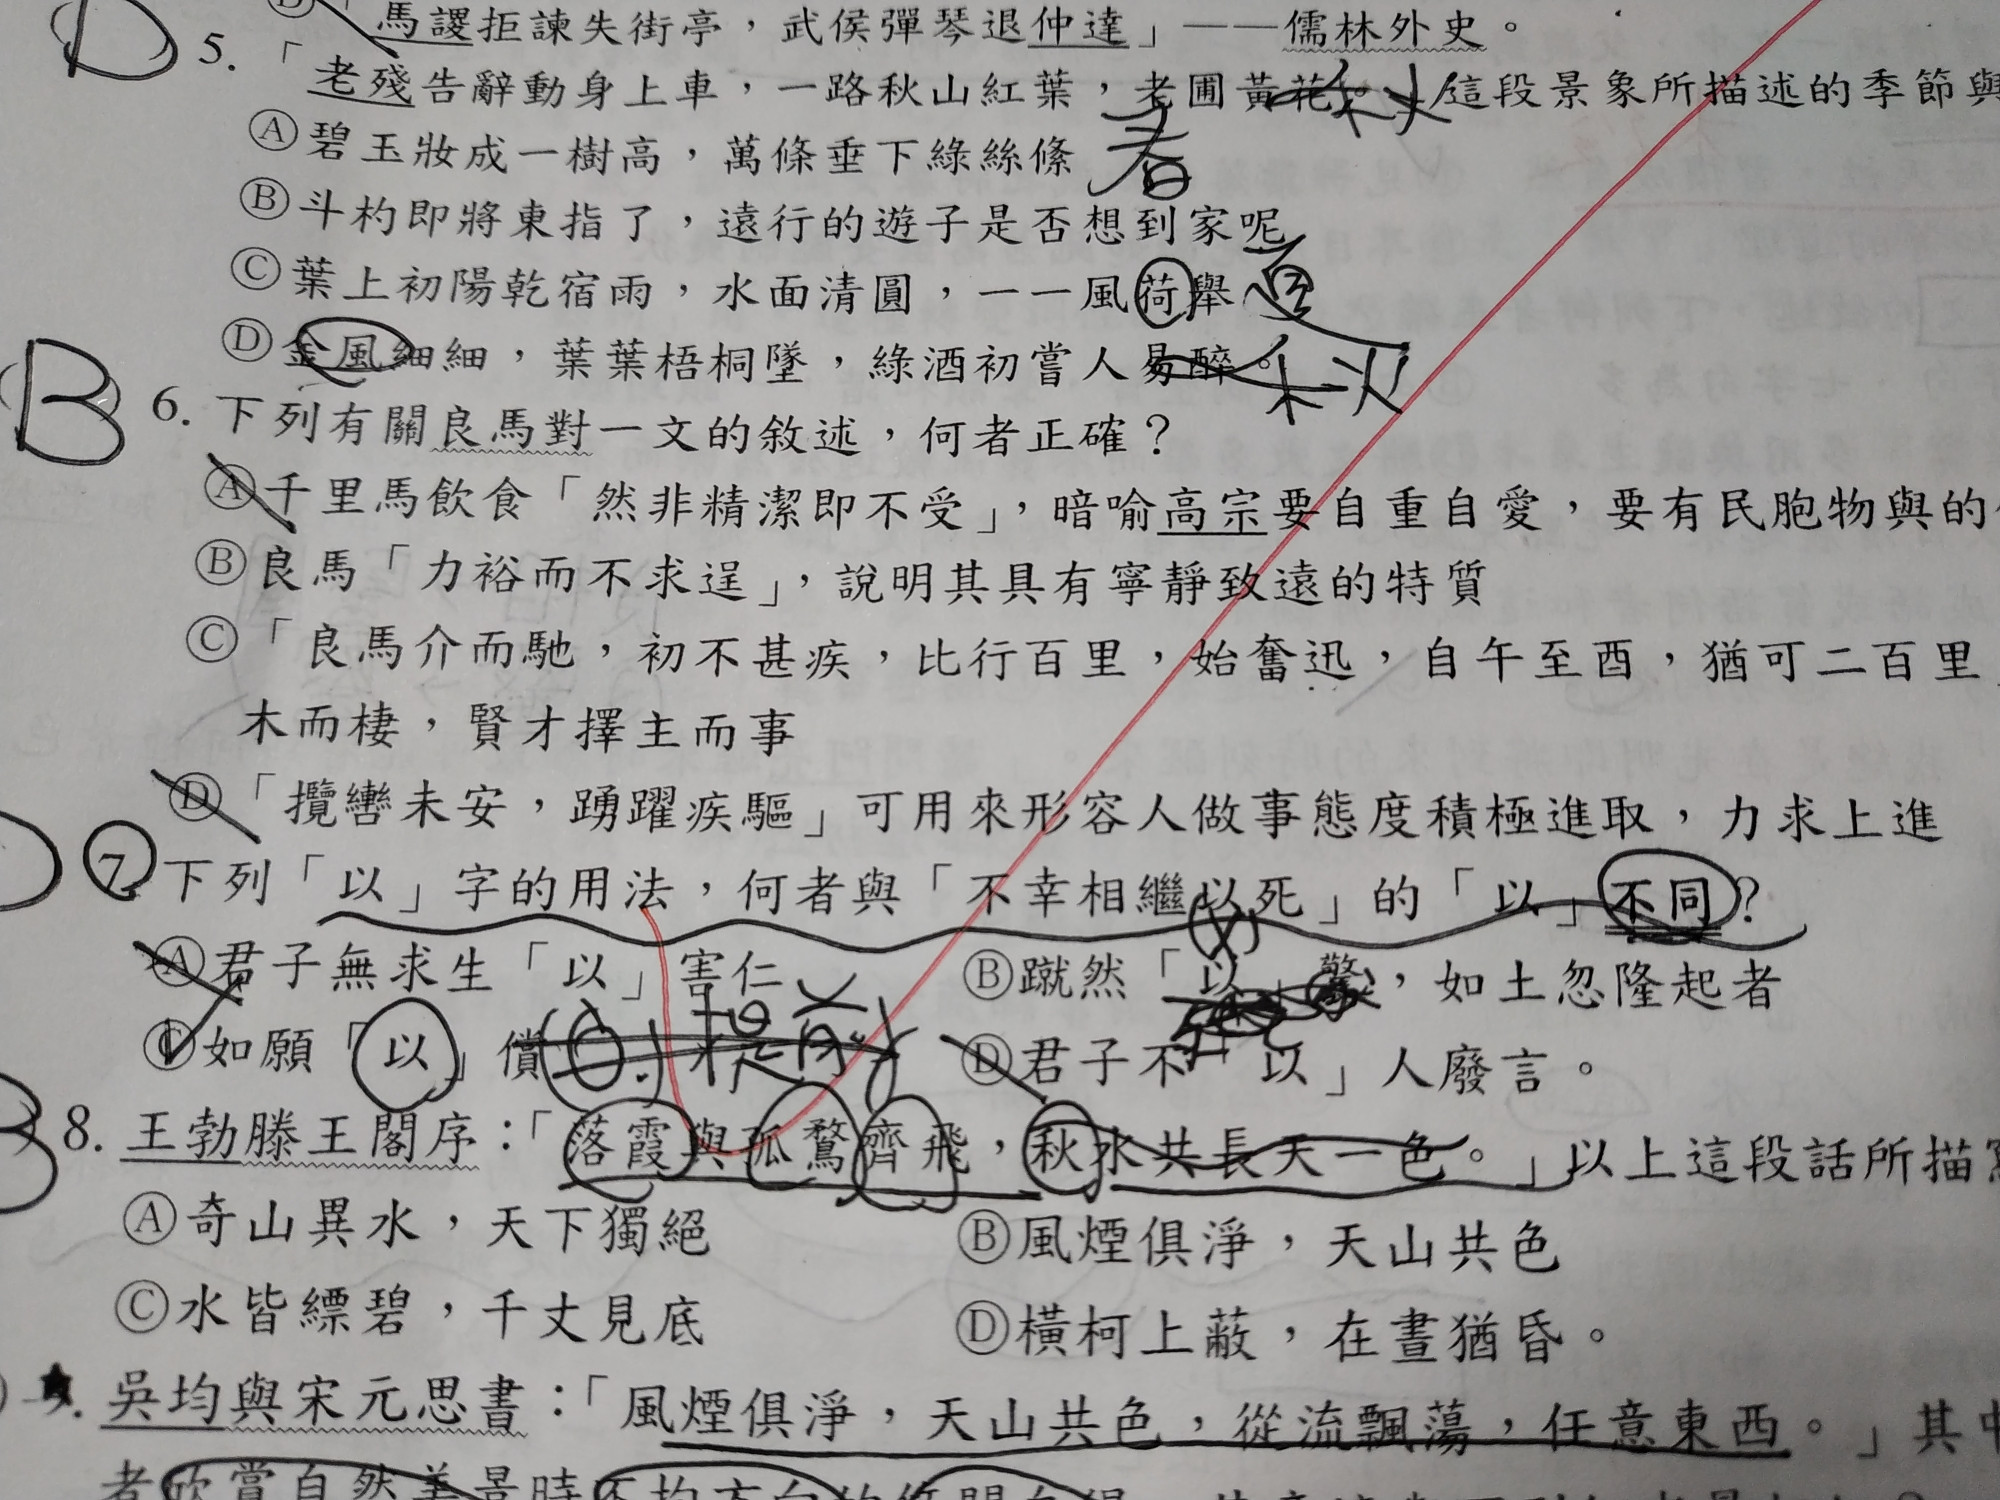 「馬謖拒諫失街亭，武侯彈琴退仲達」——儒林外史。
D 5.「老殘告辭動身上車，一路秋山紅葉，老圃黃花。」這段景象所描述的季節與
秋
Ⓐ碧玉妝成一樹高，萬條垂下綠絲絛 春
Ⓑ斗杓即將東指了，遠行的遊子是否想到家呢
Ⓒ葉上初陽乾宿雨，水面清圓，一一風荷舉 夏
Ⓓ金風細細，葉葉梧桐墜，綠酒初嘗人易醉。 秋
B 6. 下列有關良馬對一文的敘述，何者正確？
Ⓐ千里馬飲食「然非精潔即不受」，暗喻高宗要自重自愛，要有民胞物與的
Ⓑ良馬「力裕而不求逞」，說明其具有寧靜致遠的特質
Ⓒ「良馬介而馳，初不甚疾，比行百里，始奮迅，自午至酉，猶可二百里」
木而棲，賢才擇主而事
Ⓓ「攬轡未安，踴躍疾驅」可用來形容人做事態度積極進取，力求上進
7. 下列「以」字的用法，何者與「不幸相繼以死」的「以」不同？
Ⓐ君子無求生「以」害仁 Ⓑ蹴然「以」驚，如土忽隆起者
Ⓒ如願「以」償 Ⓓ君子不「以」人廢言。
8. 王勃滕王閣序：「落霞與孤鶩齊飛，秋水共長天一色。」以上這段話所描寫
Ⓐ奇山異水，天下獨絕 Ⓑ風煙俱淨，天山共色
Ⓒ水皆縹碧，千丈見底 Ⓓ橫柯上蔽，在晝猶昏。
9. 吳均與宋元思書：「風煙俱淨，天山共色，從流飄蕩，任意東西。」其中
者欣賞自然美景時